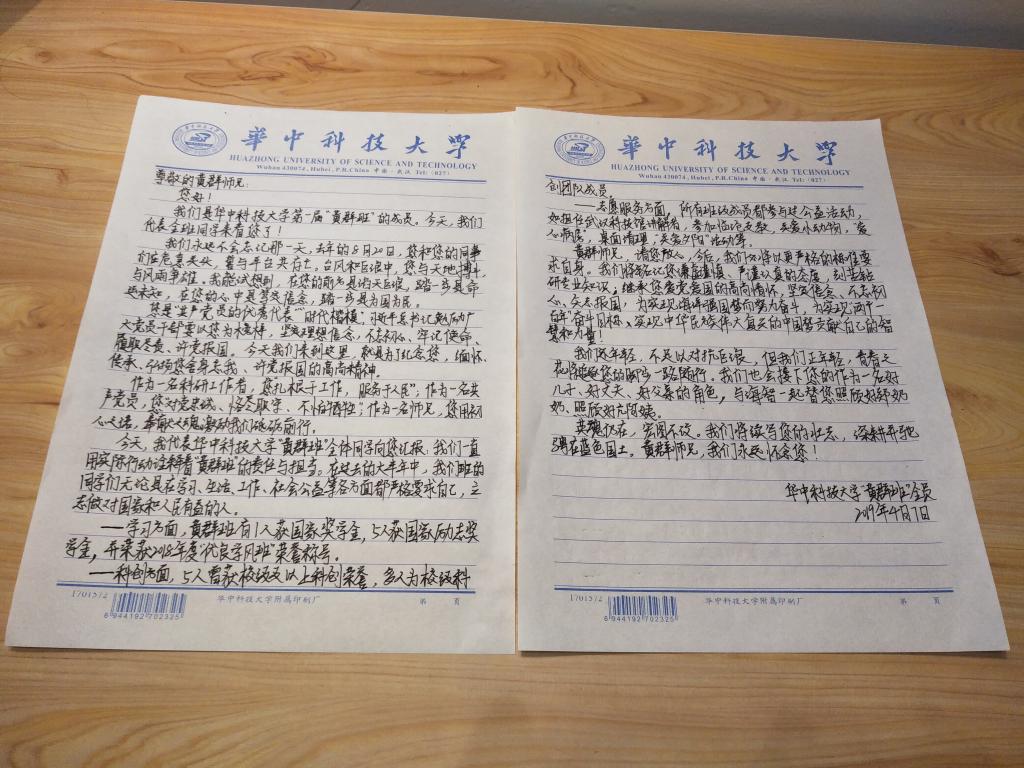 華中科技大学
HUAZHONG UNIVERSITY OF SCIENCE AND TECHNOLOGY
Wuhan 430074, Hubei, P.R.China 中国·武汉 Tel: (027)
尊敬的黄群师兄:
您好!
我们是华中科技大学第一届"黄群班"的成员。今天,我们
代表全班同学来看您了!
我们永远不会忘记那一天,去年的8月20日,您和您的同事
们在危急关头,誓与平台共存亡。台风和巨浪中,您与天地搏斗
与风雨争雄。我能试想到,在您的前方是滔天巨浪,踏一步是命
运未知,在您的心中是坚定信念,踏一步是为国为民。
您是"共产党员的优秀代表""时代楷模",习近平总书记勉励广
大党员干部要以您为榜样,坚定理想信念,不忘初心、牢记使命、
履职尽责、许党报国。今天我们来到这里,就是为了纪念您,缅怀
传承、弘扬您舍身忘我、许党报国的高尚精神。
作为一名科研工作者,您扎根于工作,服务于人民";作为一名共
产党员,您对党忠诚、恪尽职守、不怕牺牲;作为一名师兄,您用初
心火炬,激励我们砥砺前行。
今天,我代表华中科技大学"黄群班"全体同学向您汇报:我们一直
用实际行动诠释着"黄群班"的责任与担当。在过去的大半年中,我们班的
同学们无论是在学习、生活、工作、社会公益等各方面都严格要求自己,立
志做对国家和人民有益的人。
——学习方面,黄群班有1人获国家奖学金,5人获国家励志奖
学金,并荣获2018年度"优良学风班"荣誉称号。
——科创方面,5人曾获校级及以上科创荣誉,多人为校级科
1701572
6944192702325
华中科技大学附属印刷厂
第 页
華中科技大学
HUAZHONG UNIVERSITY OF SCIENCE AND TECHNOLOGY
Wuhan 430074, Hubei, P.R.China 中国·武汉 Tel: (027)
创团队成员。
——志愿服务方面,所有班级成员都参与过公益活动,
如担任武汉科技馆讲解者,参加临沧支教,关爱小动物,"爱
心病房",桌面清理,"关爱夕阳"活动等。
黄群师兄,请您放心,今后,我们必将以更严格的标准要
求自身。我们将铭记您谦虚谨慎、严谨认真的态度,刻苦钻
研专业知识,继承您爱党爱国的高尚情怀,坚定信念,不忘初
心,矢志报国,为实现海洋强国梦而努力奋斗,为实现"两个一
百年"奋斗目标、实现中华民族伟大复兴的中国梦贡献自己的智
慧和力量!
我们还年轻,不足以对抗巨浪。但我们正年轻,青春无
花将随您的脚步一路随行。我们也会接下您的作为一名好
儿子、好丈夫、好父亲的角色,与海智一起替您照顾好奶
奶、照顾好阿姨。
英魂仍在,宏图不改。我们将续写您的壮志,深耕并驰
骋在蓝色国土。黄群师兄,我们永远怀念您!
华中科技大学"黄群班"全员
2019年4月7日
1701572
6944192702325
华中科技大学附属印刷厂
第 页